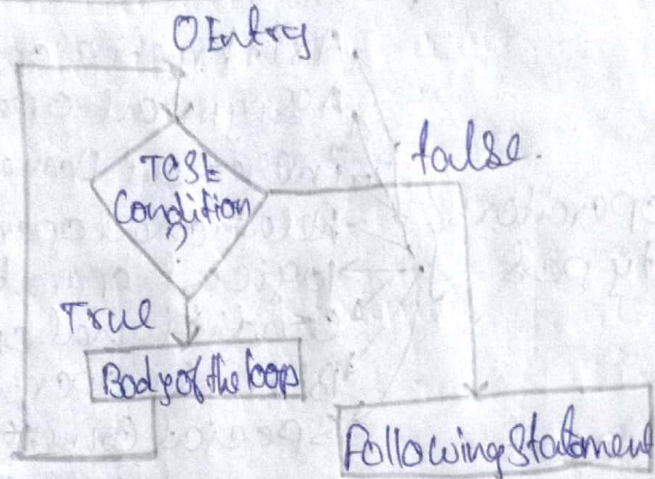 OEntry
false.
Test
Condition
?
True
Body of the loop
Following Statement